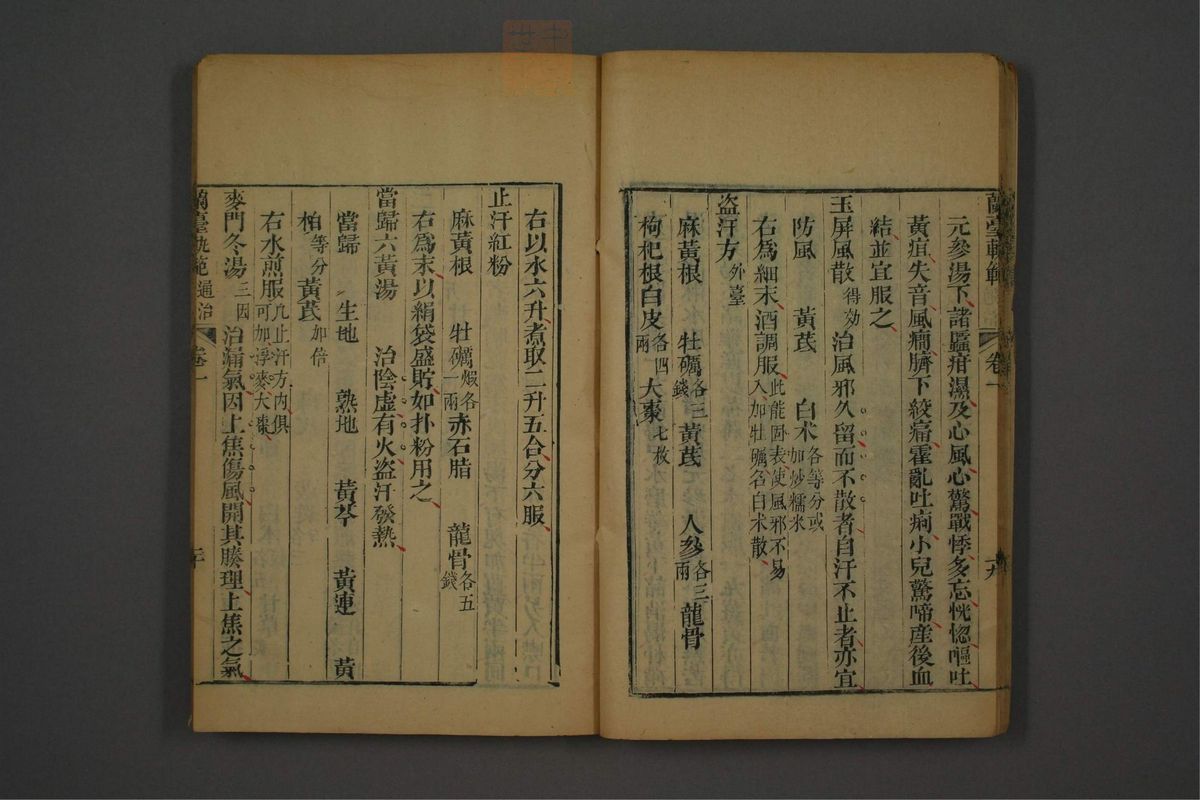 蘭臺軌範 卷一 十九
元參湯下諸䘌疳濕及心風心驚戰悸多忘恍惚嘔吐
黃疸失音風癇臍下絞痛霍亂吐痢小兒驚啼產後血
結並宜服之
玉屏風散 得効 治風邪久留而不散者自汗不止者亦宜
防風 黃芪 白术 各等分或加炒糯米
右爲細末酒調服 此能固表使風邪不易入加牡礪名白术散
盜汗方 外臺
麻黃根 牡礪 各三錢 黃芪 人參 各三兩 龍骨
枸杞根白皮 各四兩 大棗 七枚
右以水六升煮取二升五合分六服
止汗紅粉
麻黃根 牡礪 煆各一兩 赤石脂 龍骨 各五錢
右爲末以絹袋盛貯如扑粉用之
當歸六黃湯 治陰虛有火盜汗發熱
當歸 生地 熟地 黃芩 黃連 黃
柏 等分 黃芪 加倍
右水煎服 凡止汗方內俱可加浮麥大棗
麥門冬湯 三因 治漏氣因上焦傷風開其腠理上焦之氣
蘭臺軌範 通治 卷一 二十